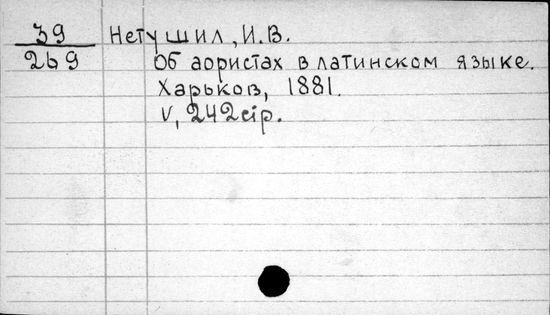 39 Нетушил, И.В.
269 Об аористах в латинском языке.
Харьков, 1881.
V, 242 стр.